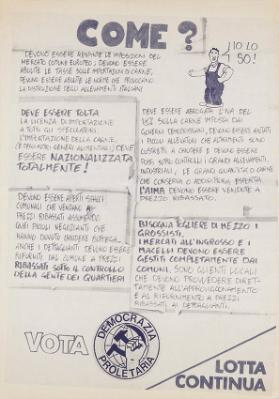 COME?
IO LO
SO!
DEVONO ESSERE RESPINTE LE IMPOSIZIONI DEL
MERCATO COMUNE EUROPEO; DEVONO ESSERE
ABOLITE LE TASSE SULLE IMPORTAZIONI DI CARNE,
DEVONO ESSERE ABOLITE LE NORME CHE
LA DISTRUZIONE DEGLI ALLEVAMENTI ITALIANI
DEVE ESSERE TOLTA
LA LICENZA DI IMPORTAZIONE
A TUTTI GLI SPECULATORI.
L'IMPORTAZIONE DELLA CARNE,
GENERI ALIMENTARI) DEVE
ESSERE NAZIONALIZZATA
TOTALMENTE!
DEVONO ESSERE APERTI SPACCI
COMUNALI CHE VENDANO A
PREZZI RIBASSATI ASSUMENDO
QUEI PICCOLI NEGOZIANTI CHE
HANNO DOVUTO CHIUDERE BOTTEGA.
ANCHE I DETTAGLIANTI DEVONO ESSERE
RIFORNITI DAL COMUNE A PREZZI
RIBASSATI SOTTO IL CONTROLLO
DELLA GENTE DEI QUARTIERI
DEVE ESSERE ABROGATA L'IVA DEL
18% SULLA CARNE IMPOSTA DAI
GOVERNI DEMOCRISTIANI, DEVONO ESSERE AIUTATI
I PICCOLI ALLEVATORI CHE ALTRIMENTI SONO
COSTRETTI A CHIUDERE E DEVONO ESSERE
POSTI SOTTO CONTROLLO I GRANDI ALLEVAMENTI
INDUSTRIALI, LE GRANDI QUANTITÀ DI CARNE
CHE CONSERVA O ADDIRITTURA ESPORTA
L'AIMA DEVONO ESSERE VENDUTE A
PREZZO RIBASSATO.
BISOGNA TOGLIERE DI MEZZO I
GROSSISTI,
I MERCATI ALL'INGROSSO E I
MACELLI DEVONO ESSERE
GESTITI COMPLETAMENTE DAI
COMUNI. SONO GLI ENTI LOCALI
CHE DEVONO PROVVEDERE DIRET-
TAMENTE ALL'APPROVVIGIONAMENTO
E AL RIFORNIMENTO A PREZZI
RIBASSATI AI DETTAGLIANTI.
VOTA
DEMOCRAZIA
PROLETARIA
LOTTA
CONTINUA